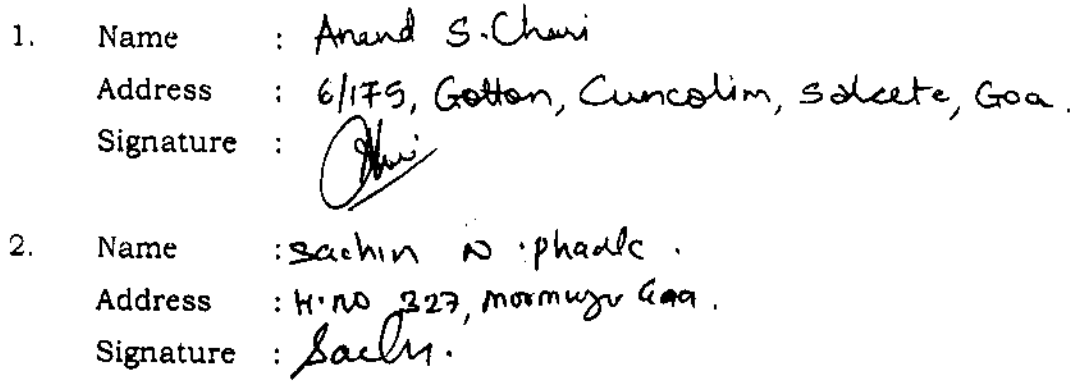 1. Name : Anand S. Chari
Address : 6/175, Gotton, Cuncolim, Salcete, Goa.
Signature :
2. Name : Sachin N. phadlc.
Address : H. no 327, Mormugv Goa.
Signature : Sach